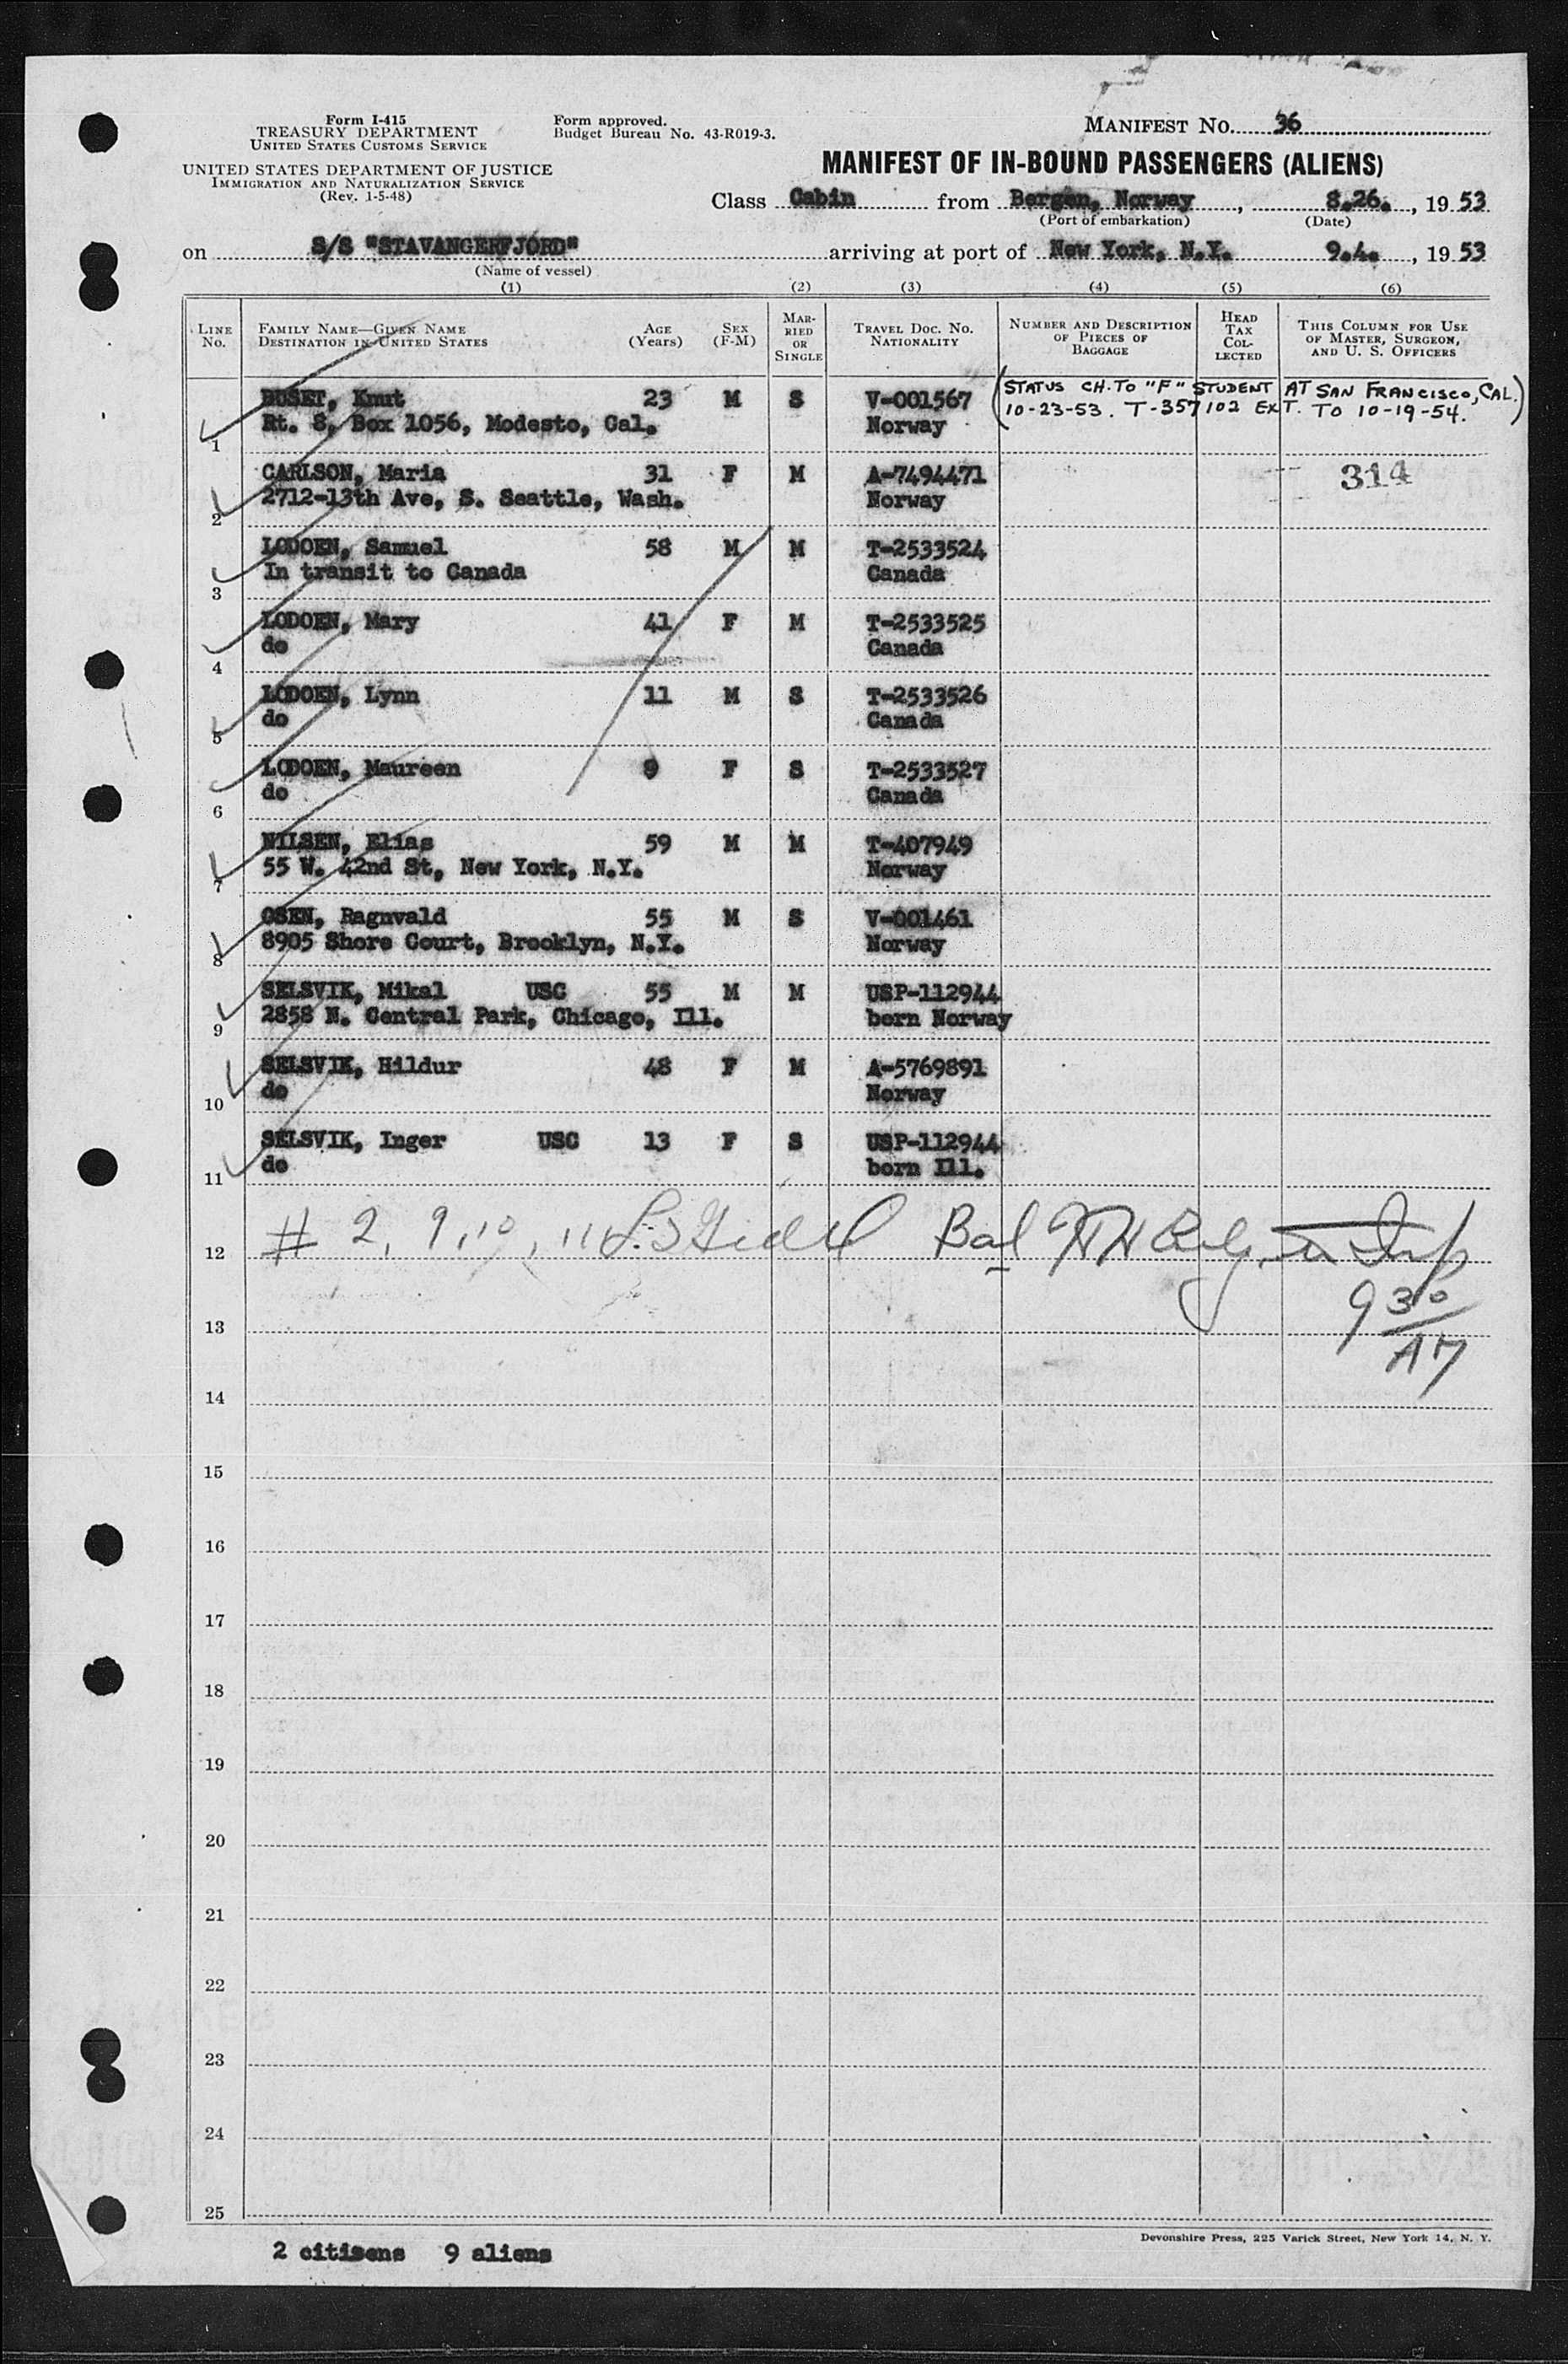 Form I-415
TREASURY DEPARTMENT
UNITED STATES CUSTOMS SERVICE
UNITED STATES DEPARTMENT OF JUSTICE
IMMIGRATION AND NATURALIZATION SERVICE
(Rev. 1-5-48)
Form approved.
Budget Bureau No. 43-R019-3.
MANIFEST NO. 36
MANIFEST OF IN-BOUND PASSENGERS (ALIENS)
Class Cabin from Bergen, Norway, 8.26., 1953
(Port of embarkation) (Date)
on S/S "STAVANGERFJORD" arriving at port of New York, N.Y. 9.4., 1953
(Name of vessel)
(1) (2) (3) (4) (5) (6)
LINE No. FAMILY NAME—GIVEN NAME DESTINATION IN UNITED STATES AGE (Years) SEX (F-M) MARRIED OR SINGLE TRAVEL DOC. NO. NATIONALITY NUMBER AND DESCRIPTION OF PIECES OF BAGGAGE HEAD TAX COLLECTED THIS COLUMN FOR USE OF MASTER, SURGEON, AND U. S. OFFICERS
BUSET, Knut 23 M S V-001567 (STATUS CH. TO "F" STUDENT AT SAN FRANCISCO, CAL.
1 Rt. 8, Box 1056, Modesto, Cal. Norway 10-23-53. T-357102 EXT. TO 10-19-54.)
CARLSON, Maria 31 F M A-7494471 314
2 2712-13th Ave, S. Seattle, Wash. Norway
LODOEN, Samuel 58 M M T-2533524
3 In transit to Canada Canada
LODOEN, Mary 41 F M T-2533525
4 do Canada
LODOEN, Lynn 11 M S T-2533526
5 do Canada
LODOEN, Maureen 9 F S T-2533527
6 do Canada
NILSEN, Elias 59 M M T-407949
7 55 W. 42nd St, New York, N.Y. Norway
OSEN, Ragnvald 55 M S V-001461
8 8905 Shore Court, Brooklyn, N.Y. Norway
SELSVIK, Mikal USC 55 M M USP-112944
9 2858 N. Central Park, Chicago, Ill. born Norway
SELSVIK, Hildur 48 F M A-5769891
10 do Norway
SELSVIK, Inger USC 13 F S USP-112944
11 do born Ill.
12 # 2, 9, 10, 11 Bal
13 9 30
AM
14
15
16
17
18
19
20
21
22
23
24
25
Devonshire Press, 225 Varick Street, New York 14, N. Y.
2 citizens 9 aliens